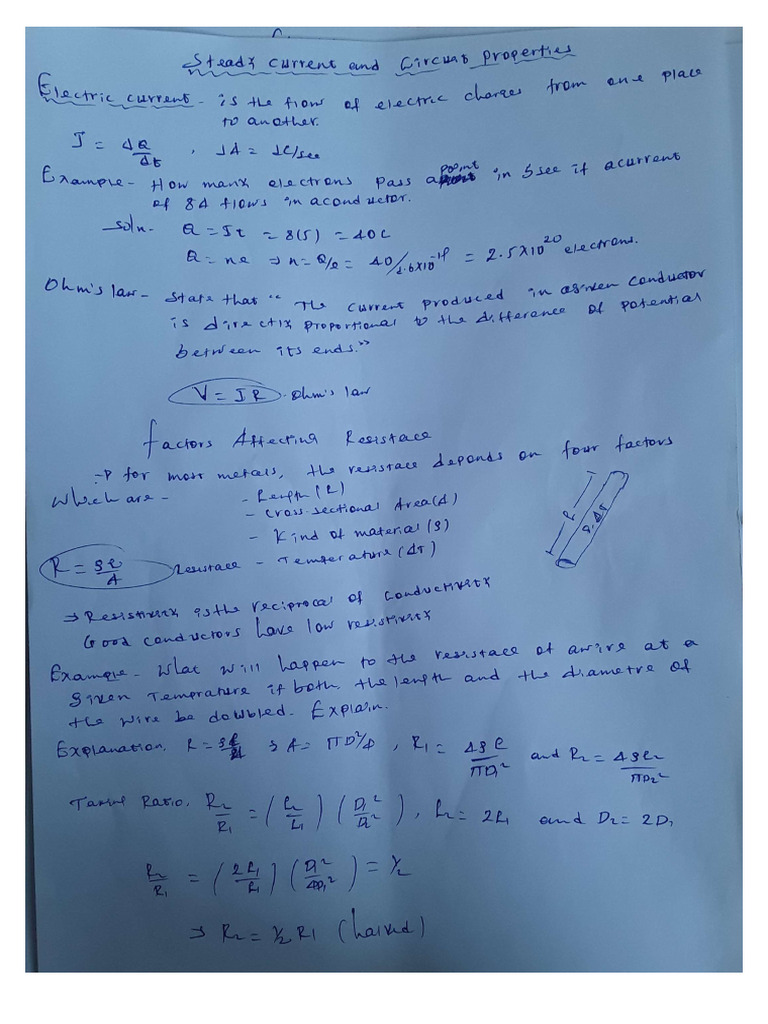 Steady current and Circuit properties
Electric current - is the flow of electric charges from one place
to another.
I = ΔQ/Δt , 1A = 1C/sec
Example - How many electrons pass a point in 5sec if a current
of 8A flows in a conductor.
Soln. Q = It = 8(5) = 40C
Q = ne ⇒ n = Q/e = 40/1.6x10^-19 = 2.5x10^20 electrons.
Ohm's law - State that "The current produced in a given conductor
is directly proportional to the difference of potential
between its ends."
V = IR . Ohm's law
Factors Affecting Resistace
⇒ for most metals, the resistace depends on four factors
which are - - Length (l)
- Cross-sectional Area (A)
- Kind of material (ρ)
R = ρl/A Resistace - Temperature (ΔT)
l ρ, ΔT
⇒ Resistivity is the reciprocal of conductivity
Good conductors have low resistivity
Example - What will happen to the resistace of a wire at a
given Temprature if both, the length and the diametre of
the wire be doubled. Explain.
Explanation, R = ρl/A ; A = πD²/4 , R1 = 4ρl/πD1² and R2 = 4ρl2/πD2²
Taking Ratio, R2/R1 = (l2/L1) (D1²/D2²), L2 = 2l1 and D2 = 2D1
R2/R1 = (2l1/l1) (D1²/4D1²) = 1/2
⇒ R2 = 1/2 R1 (halved)